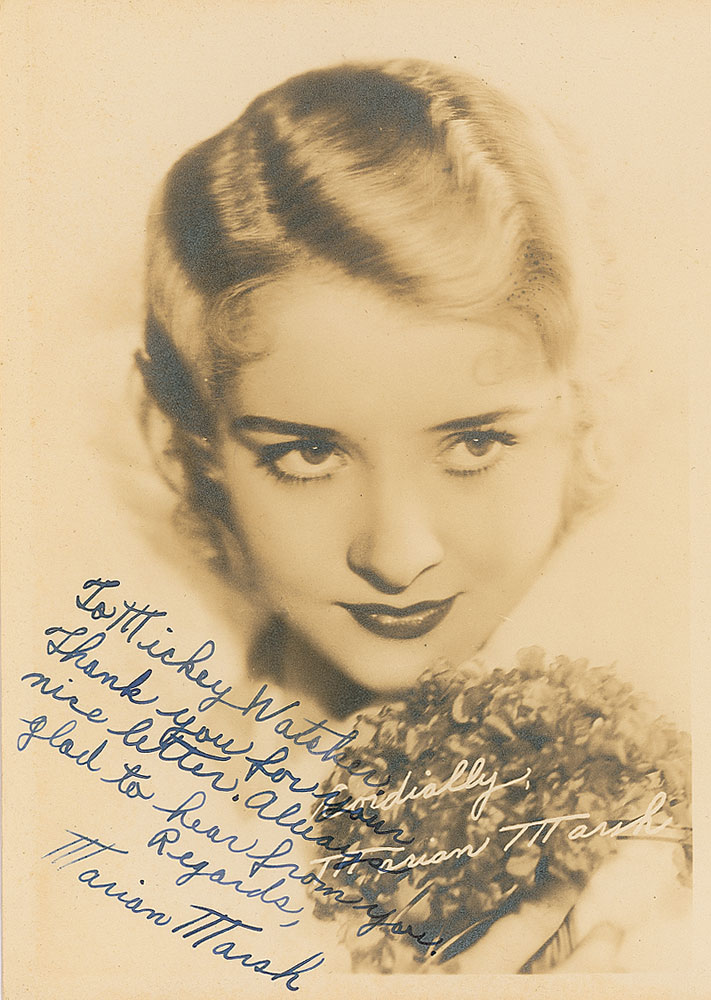 To Mickey Watsher
Thank you for your
nice letter. Always
glad to hear from you.
Regards,
Marian Marsh
Cordially,
Marian Marsh